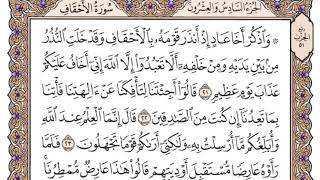 الجزء السادس والعشرون سورة الأحقاف
۞ وَٱذْكُرْ أَخَا عَادٍ إِذْ أَنذَرَ قَوْمَهُۥ بِٱلْأَحْقَافِ وَقَدْ خَلَتِ ٱلنُّذُرُ
مِنۢ بَيْنِ يَدَيْهِ وَمِنْ خَلْفِهِۦٓ أَلَّا تَعْبُدُوٓا۟ إِلَّا ٱللَّهَ إِنِّىٓ أَخَافُ عَلَيْكُمْ
عَذَابَ يَوْمٍ عَظِيمٍ ٢١ قَالُوٓا۟ أَجِئْتَنَا لِتَأْفِكَنَا عَنْ ءَالِهَتِنَا فَأْتِنَا
بِمَا تَعِدُنَآ إِن كُنتَ مِنَ ٱلصَّـٰدِقِينَ ٢٢ قَالَ إِنَّمَا ٱلْعِلْمُ عِندَ ٱللَّهِ
وَأُبَلِّغُكُم مَّآ أُرْسِلْتُ بِهِۦ وَلَـٰكِنِّىٓ أَرَىٰكُمْ قَوْمًا تَجْهَلُونَ ٢٣ فَلَمَّا
رَأَوْهُ عَارِضًا مُّسْتَقْبِلَ أَوْدِيَتِهِمْ قَالُوا۟ هَـٰذَا عَارِضٌ مُّمْطِرُنَا ۚ
ربع
الحزب
٥١